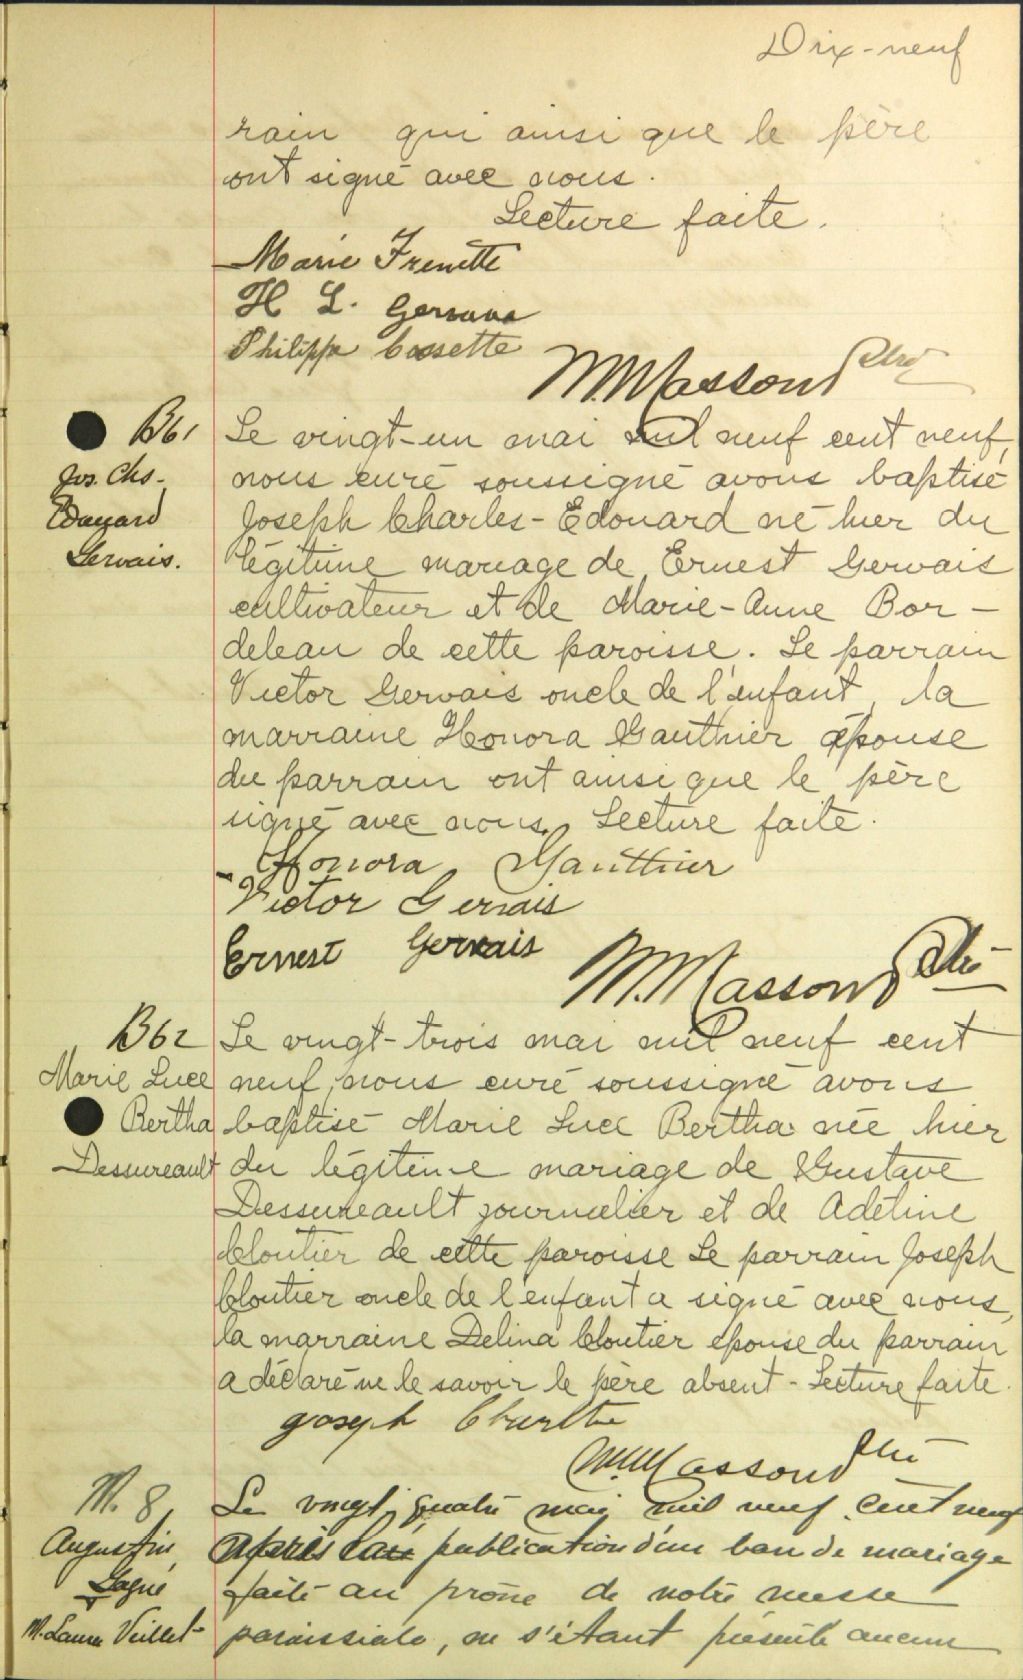 Dix-neuf
rain qui ainsi que le père
ont signé avec nous.
Lecture faite.
Marie Frenette
H L. Gervais
Philippe Cossette
M. Masson Ptre
B61
Jos. Chs.
Edouard
Gervais.
Le vingt-un mai mil neuf cent neuf,
nous curé soussigné avons baptisé
Joseph Charles-Edouard né hier du
légitime mariage de Ernest Gervais
cultivateur et de Marie-Anne Bor-
deleau de cette paroisse. Le parrain
Victor Gervais oncle de l'enfant, la
marraine Honora Gauthier épouse
du parrain ont ainsi que le père
signé avec nous. Lecture faite.
Honora Gauthier
Victor Gervais
Ernest Gervais
M. Masson Ptre
B62
Marie Luce
Bertha
Dessureault
Le vingt-trois mai mil neuf cent
neuf, nous curé soussigné avons
baptisé Marie Luce Bertha née hier
du légitime mariage de Gustave
Dessureault journalier et de Adeline
Cloutier de cette paroisse Le parrain Joseph
Cloutier oncle de l'enfant a signé avec nous,
la marraine Delina Cloutier épouse du parrain
a déclaré ne le savoir le père absent - Lecture faite.
Joseph
M. Masson Ptre
M. 8
Augustin
Gagné
M. Laura Veillet
Le vingt quatre mai mil neuf cent neuf
après la publication d'un ban de mariage
faite au prône de notre messe
paroissiale, ne s'étant présenté aucun